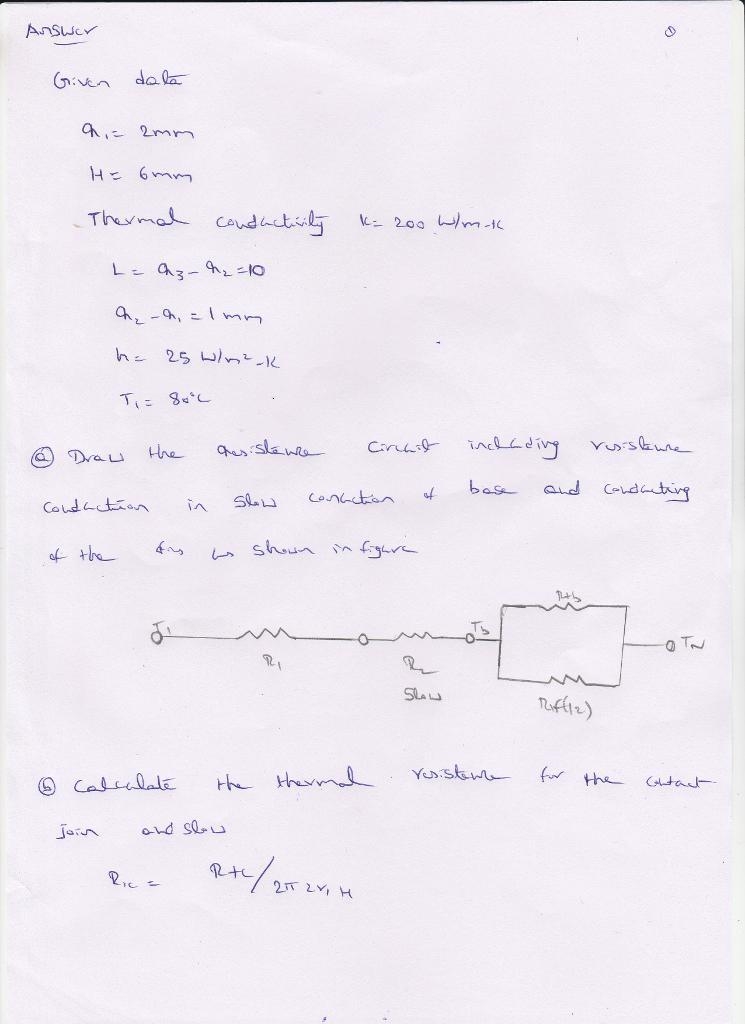 Answer
Given data
r₁ = 2mm
H = 6mm
Thermal conductivity K = 200 W/m-K
L = r₃ - r₂ = 10
r₂ - r₁ = 1 mm
h = 25 W/m²-K
T₁ = 80°C
(a) Draw the resistance circuit including resistance
conduction in of base and conducting
of the fins as shown in figure
T₁
R₁
R₂
Slow
Tb
Rtb
Rtf(12)
(b) Calculate the thermal resistance for the contact
join and slow
Rtc / 2π 2r₁ H